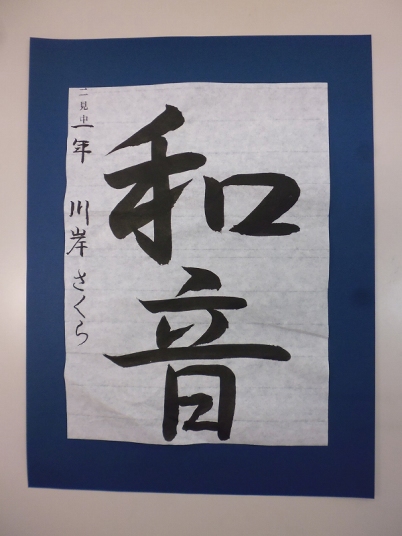 和音
二見中一年 川岸さくら